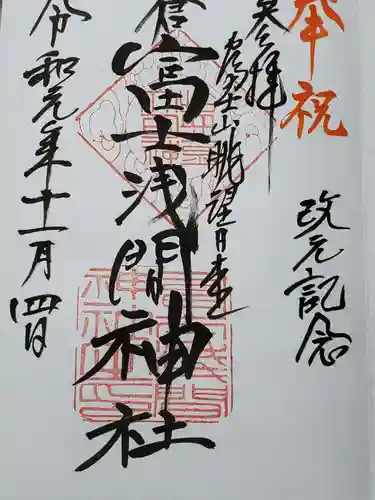 奉祝
改元記念
奉拝
富士山眺望日本一
倉富士浅間神社
令和元年十一月四日